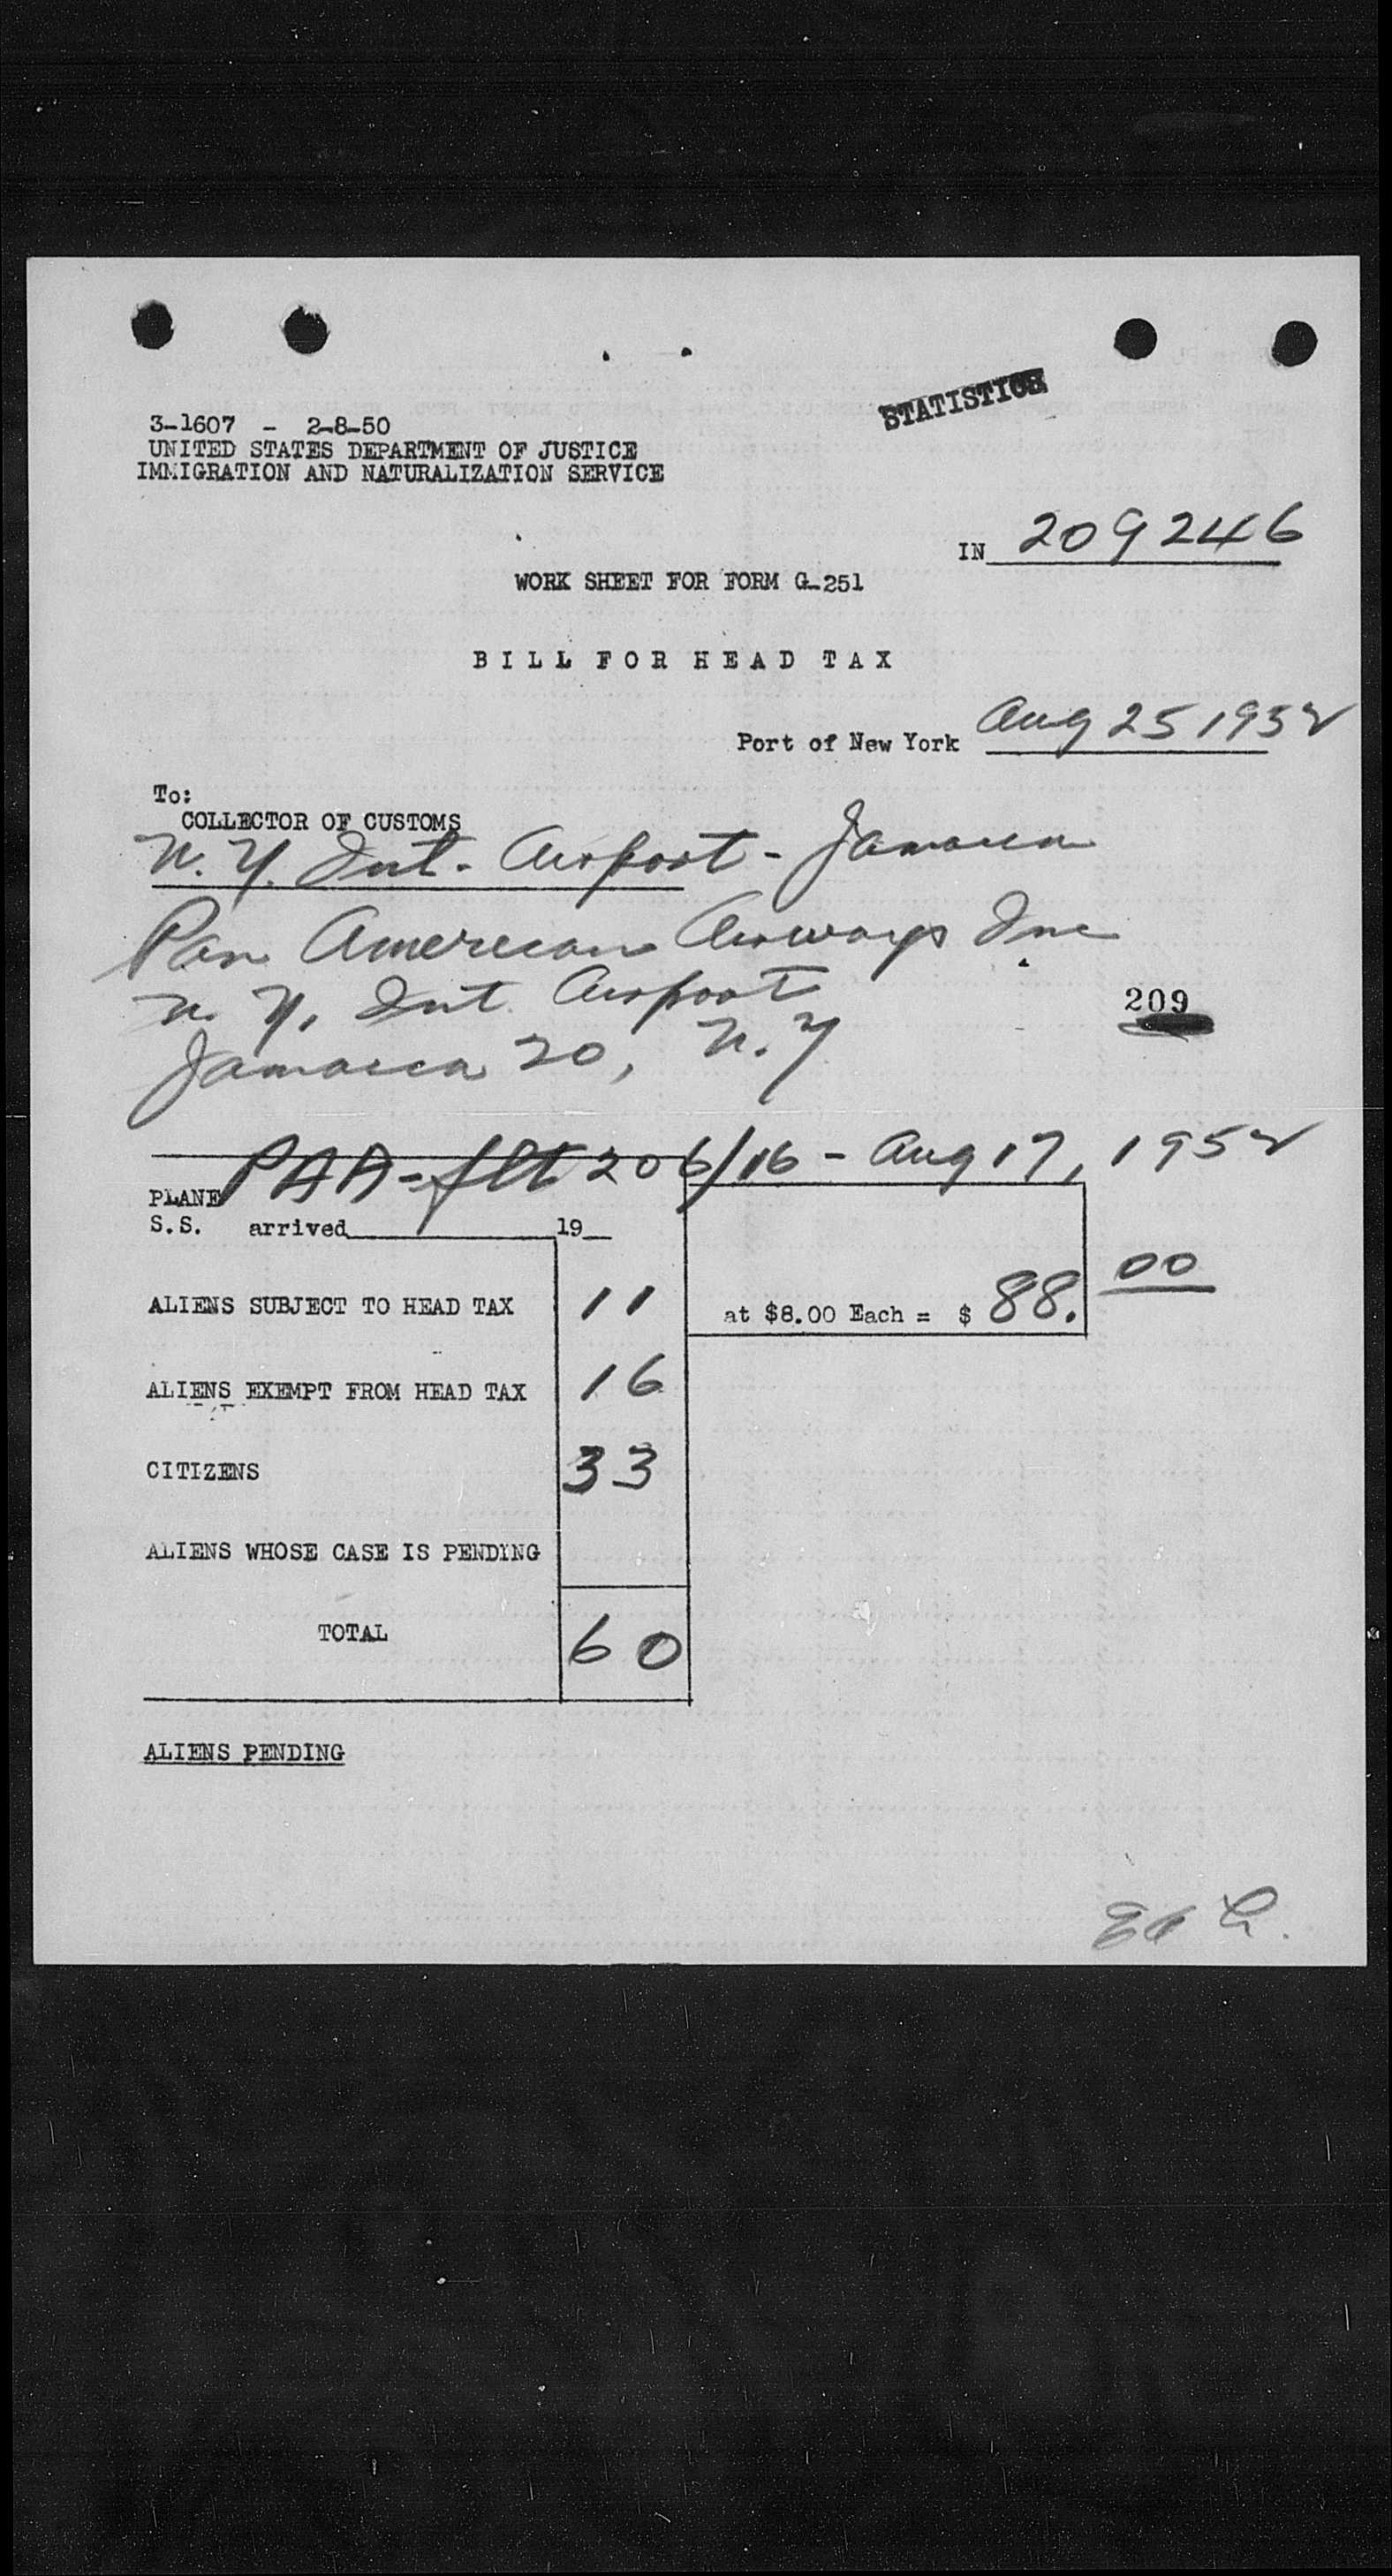 STATISTICS
3-1607 - 2-8-50
UNITED STATES DEPARTMENT OF JUSTICE
IMMIGRATION AND NATURALIZATION SERVICE
IN 209246
WORK SHEET FOR FORM G-251
BILL FOR HEAD TAX
Port of New York Aug 25 1952
To:
COLLECTOR OF CUSTOMS
N.Y. Int. Airport - Jamaica
Pan American Airways Inc
N.Y. Int Airport
209
Jamaica 20, N.Y
PAA - flt 206/16 - Aug 17, 1952
PLANE
S.S. arrived 19
ALIENS SUBJECT TO HEAD TAX 11 at $8.00 Each = $ 88.00
ALIENS EXEMPT FROM HEAD TAX 16
CITIZENS 33
ALIENS WHOSE CASE IS PENDING
TOTAL 60
ALIENS PENDING